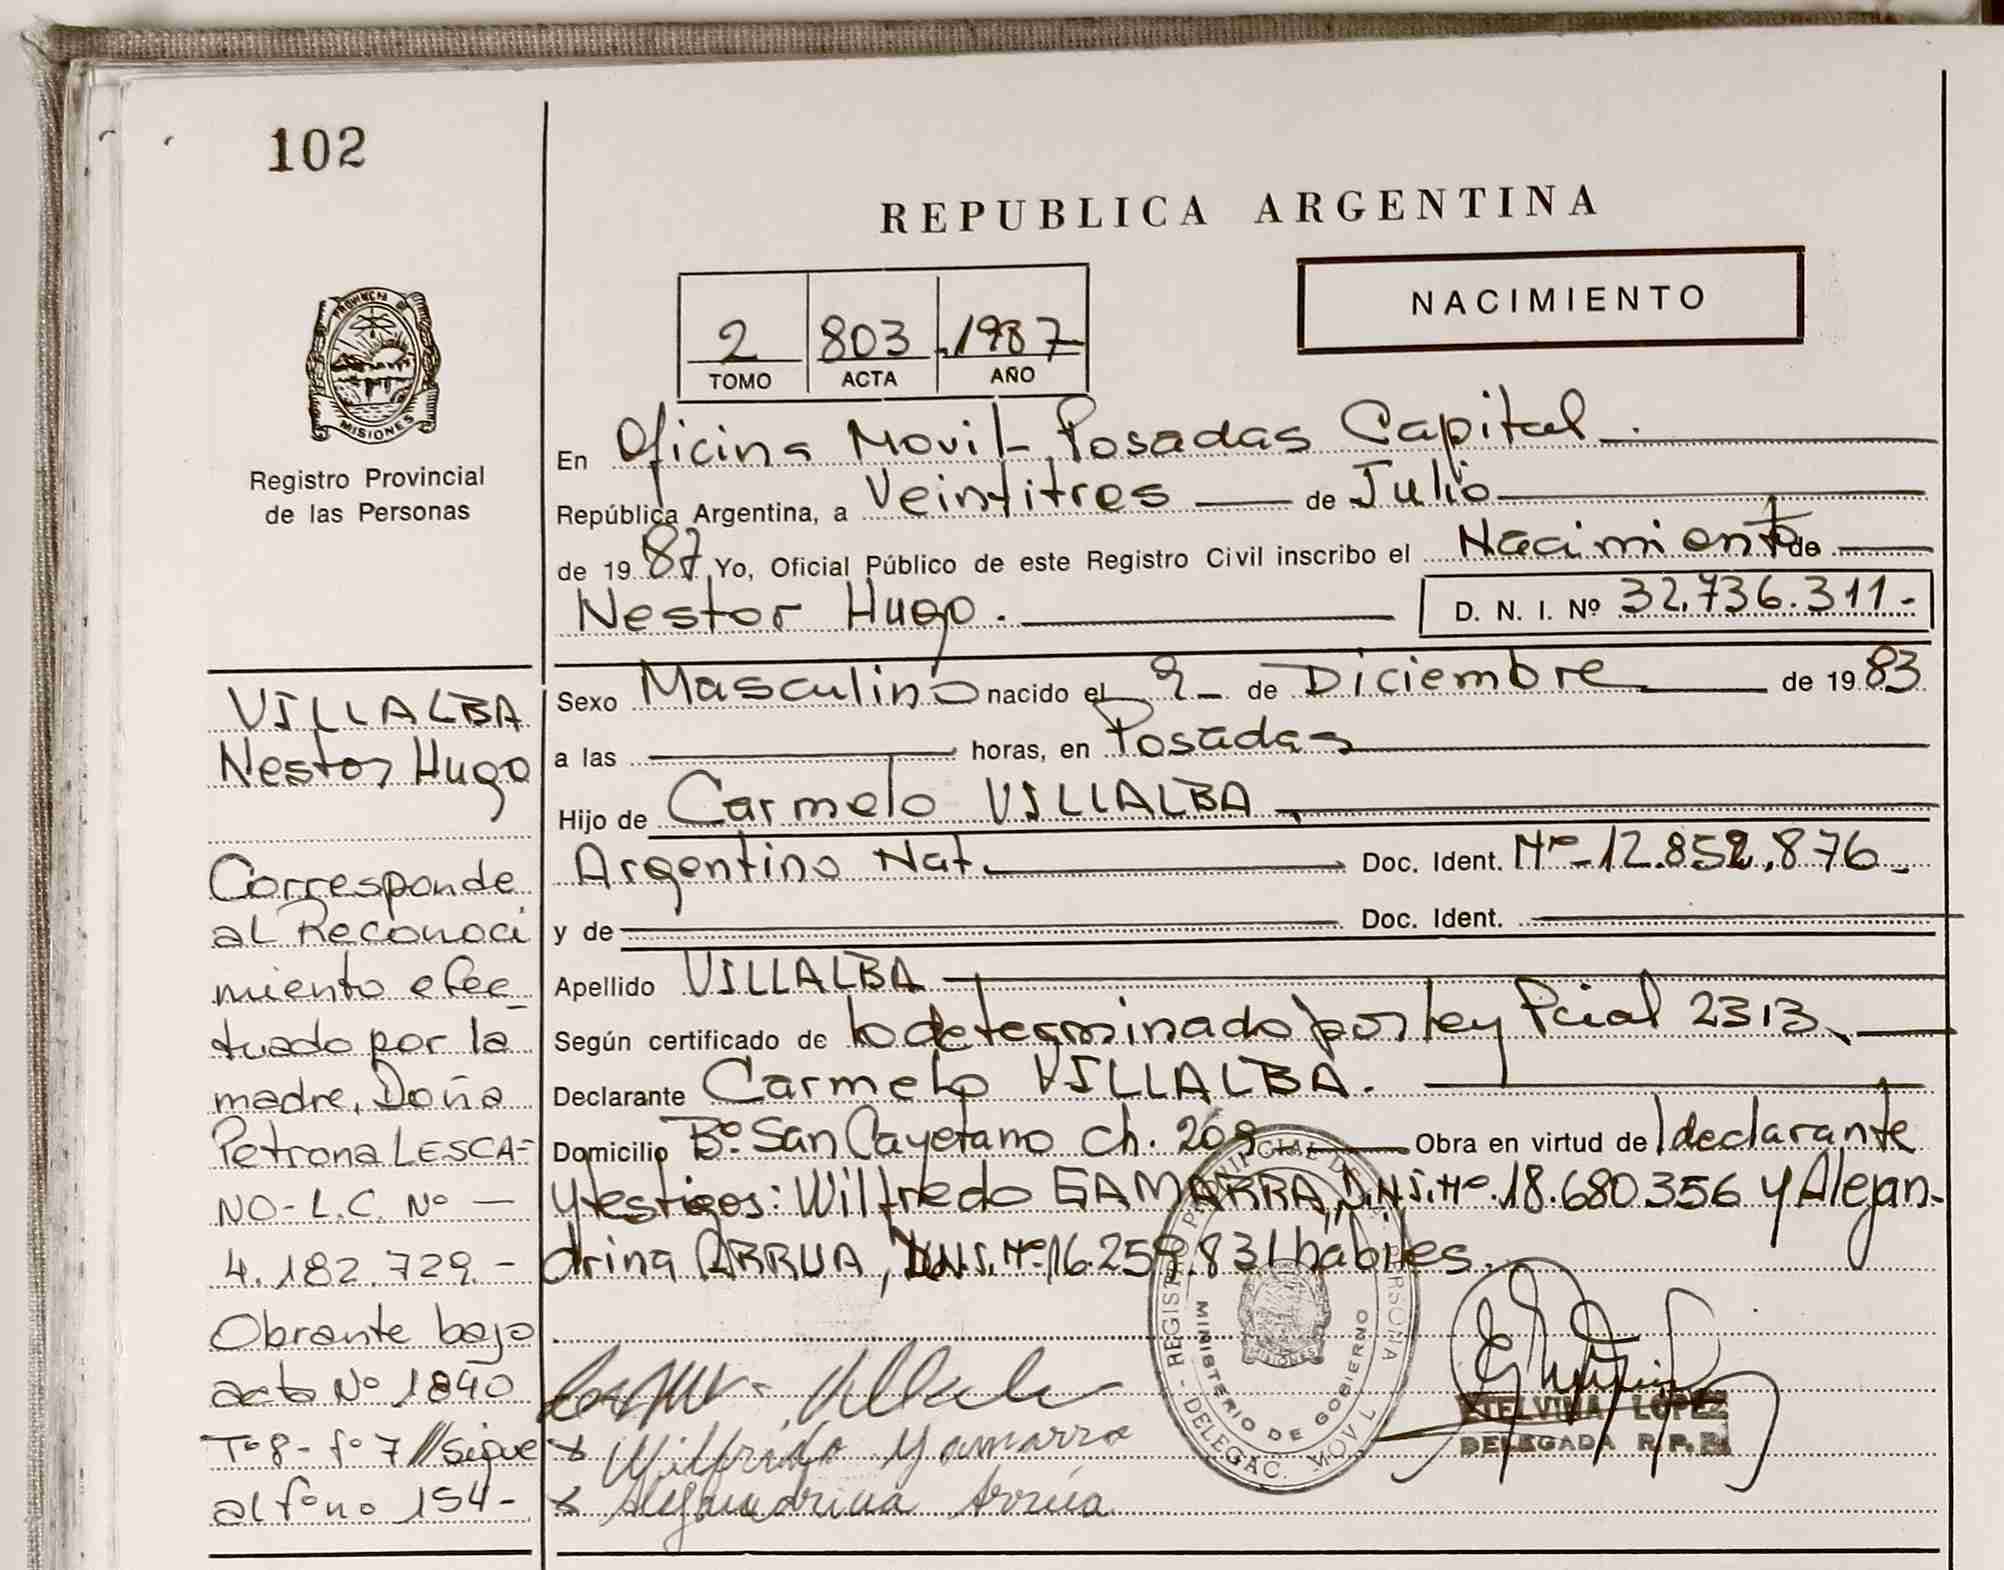 102
REPUBLICA ARGENTINA
NACIMIENTO
2 803 1987
TOMO ACTA AÑO
PROVINCIA DE
MISIONES
Registro Provincial
de las Personas
En Oficina Movil Posadas Capital.
República Argentina, a Veintitres de Julio
de 1987 Yo, Oficial Público de este Registro Civil inscribo el Nacimiento de
Nestor Hugo. D. N. I. Nº 32.736.311.-
Sexo Masculino nacido el 2 de Diciembre de 1983
a las horas, en Posadas
Hijo de Carmelo VILLALBA
Argentino Nat. Doc. Ident. Nº 12.852.876
y de Doc. Ident.
Apellido VILLALBA
Según certificado de lo determinado por ley Pcial 2313.
Declarante Carmelo VILLALBA.
Domicilio Bº San Cayetano Ch. 209 Obra en virtud de l declarante
y testigos: Wilfredo GAMARRA, D.N.I. Nº 18.680.356 y Alejan-
drina ARRUA, D.N.I. Nº 16.259.831 hábiles.
VILLALBA
Nestor Hugo
Corresponde
al Reconoci
miento efec_
tuado por la
madre, Doña
Petrona LESCA-
NO- L.C. Nº —
4.182.729.-
Obrante bajo
acta Nº 1840
Tº 8- fº 7 // Sigue
al fono 154-
Wilfrido Gamarra
Alejandrina Arrúa
REGISTRO PROVINCIAL DE LAS PERSONAS
MINISTERIO DE GOBIERNO
MISIONES
- DELEGAC. MOVIL
ETELVINA LOPEZ
DELEGADA R.P.P.